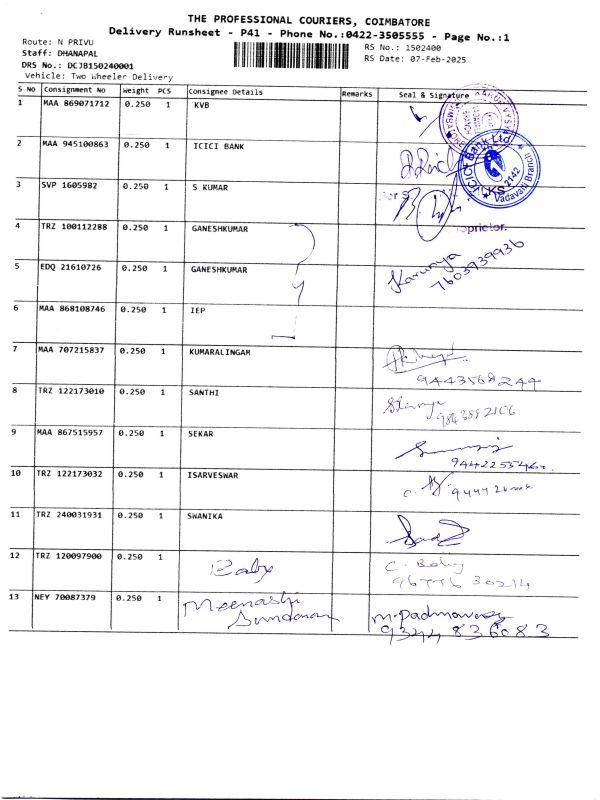 THE PROFESSIONAL COURIERS, COIMBATORE
Delivery Runsheet - P41 - Phone No.:0422-3505555 - Page No.:1
Route: N PRIVU
RS No.: 1502400
Staff: DHANAPAL
RS Date: 07-Feb-2025
DRS No.: DCJB150240001
Vehicle: Two Wheeler Delivery
S No Consignment No Weight PCS Consignee Details Remarks Seal & Signature
1 MAA 869071712 0.250 1 KVB
2 MAA 945100863 0.250 1 ICICI BANK
ICICI Bank Ltd
2142
Vadavalli Branch
3 SVP 1605982 0.250 1 S KUMAR
4 TRZ 100112288 0.250 1 GANESHKUMAR
oprietor.
5 EDQ 21610726 0.250 1 GANESHKUMAR Karunya
7603939936
6 MAA 868108746 0.250 1 IEP
7 MAA 707215837 0.250 1 KUMARALINGAM
9443568244
8 TRZ 122173010 0.250 1 SANTHI
9 MAA 867515957 0.250 1 SEKAR
10 TRZ 122173032 0.250 1 ISARVESWAR
11 TRZ 240031931 0.250 1 SWANIKA
12 TRZ 120097900 0.250 1 Baby C. Baby
96776 30214
13 NEY 70087379 0.250 1 Meenashi
Sundaram
M. Padmavathy
9344 836083